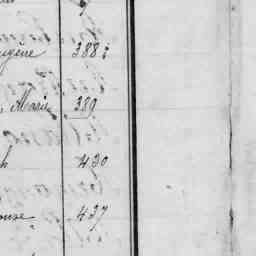 ugène 388
, Marie 389
h 430
ouse 437